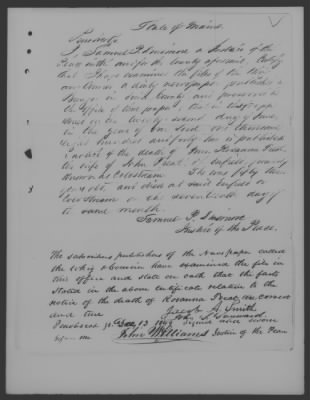 State of Maine
Penobscot ss
I, Samuel P. Dinsmore a Justice of the
Peace within and for the County aforesaid. Certify
that I have examined the files of the Whig
and Courier a daily newspaper published in
Bangor in said County and preserved in
the office of said paper, that in the paper
issued on the twenty second day of June,
in the year of our Lord one thousand
eight hundred and forty two is published
a notice of the death of Mrs. Roxanna Treat
the wife of John Treat of Enfield formerly
known as Coldstream. She was fifty three
years old, and died at said Enfield or
Coldstream on the seventeenth day of
the same month.
Samuel P. Dinsmore
Justice of the Peace.
The subscribers publishers of the Newspaper called
the Whig & Courier have examined the file in
this office and state on oath that the facts
stated in the above certificate relative to the
notice of the death of Roxanna Treat are correct
and true
Jacob A. Smith
John S. Sayward
Penobscot ss Dec 13 1849 Signed and sworn
before me
John Williams Justice of the Peace